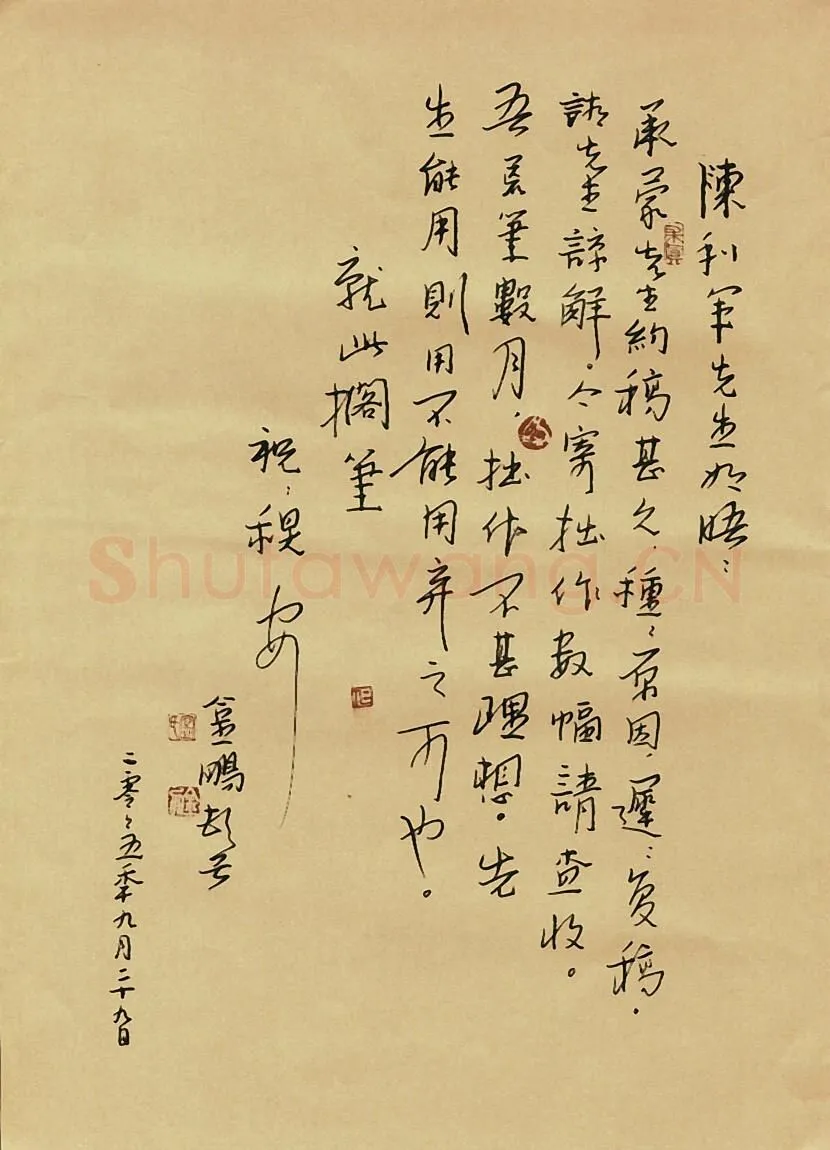 陳利軍先生如晤：
承蒙先生約稿甚久，種〻原因，遲〻复稿，
請先生諒解。今寄拙作数幅請查收。
吾筆數月，拙作不甚理想。先
生能用則用不能用弃之可也。
就此擱筆
祝：安
金鵬頓首
二零〻五年九月二十九日
Shufawang.CN